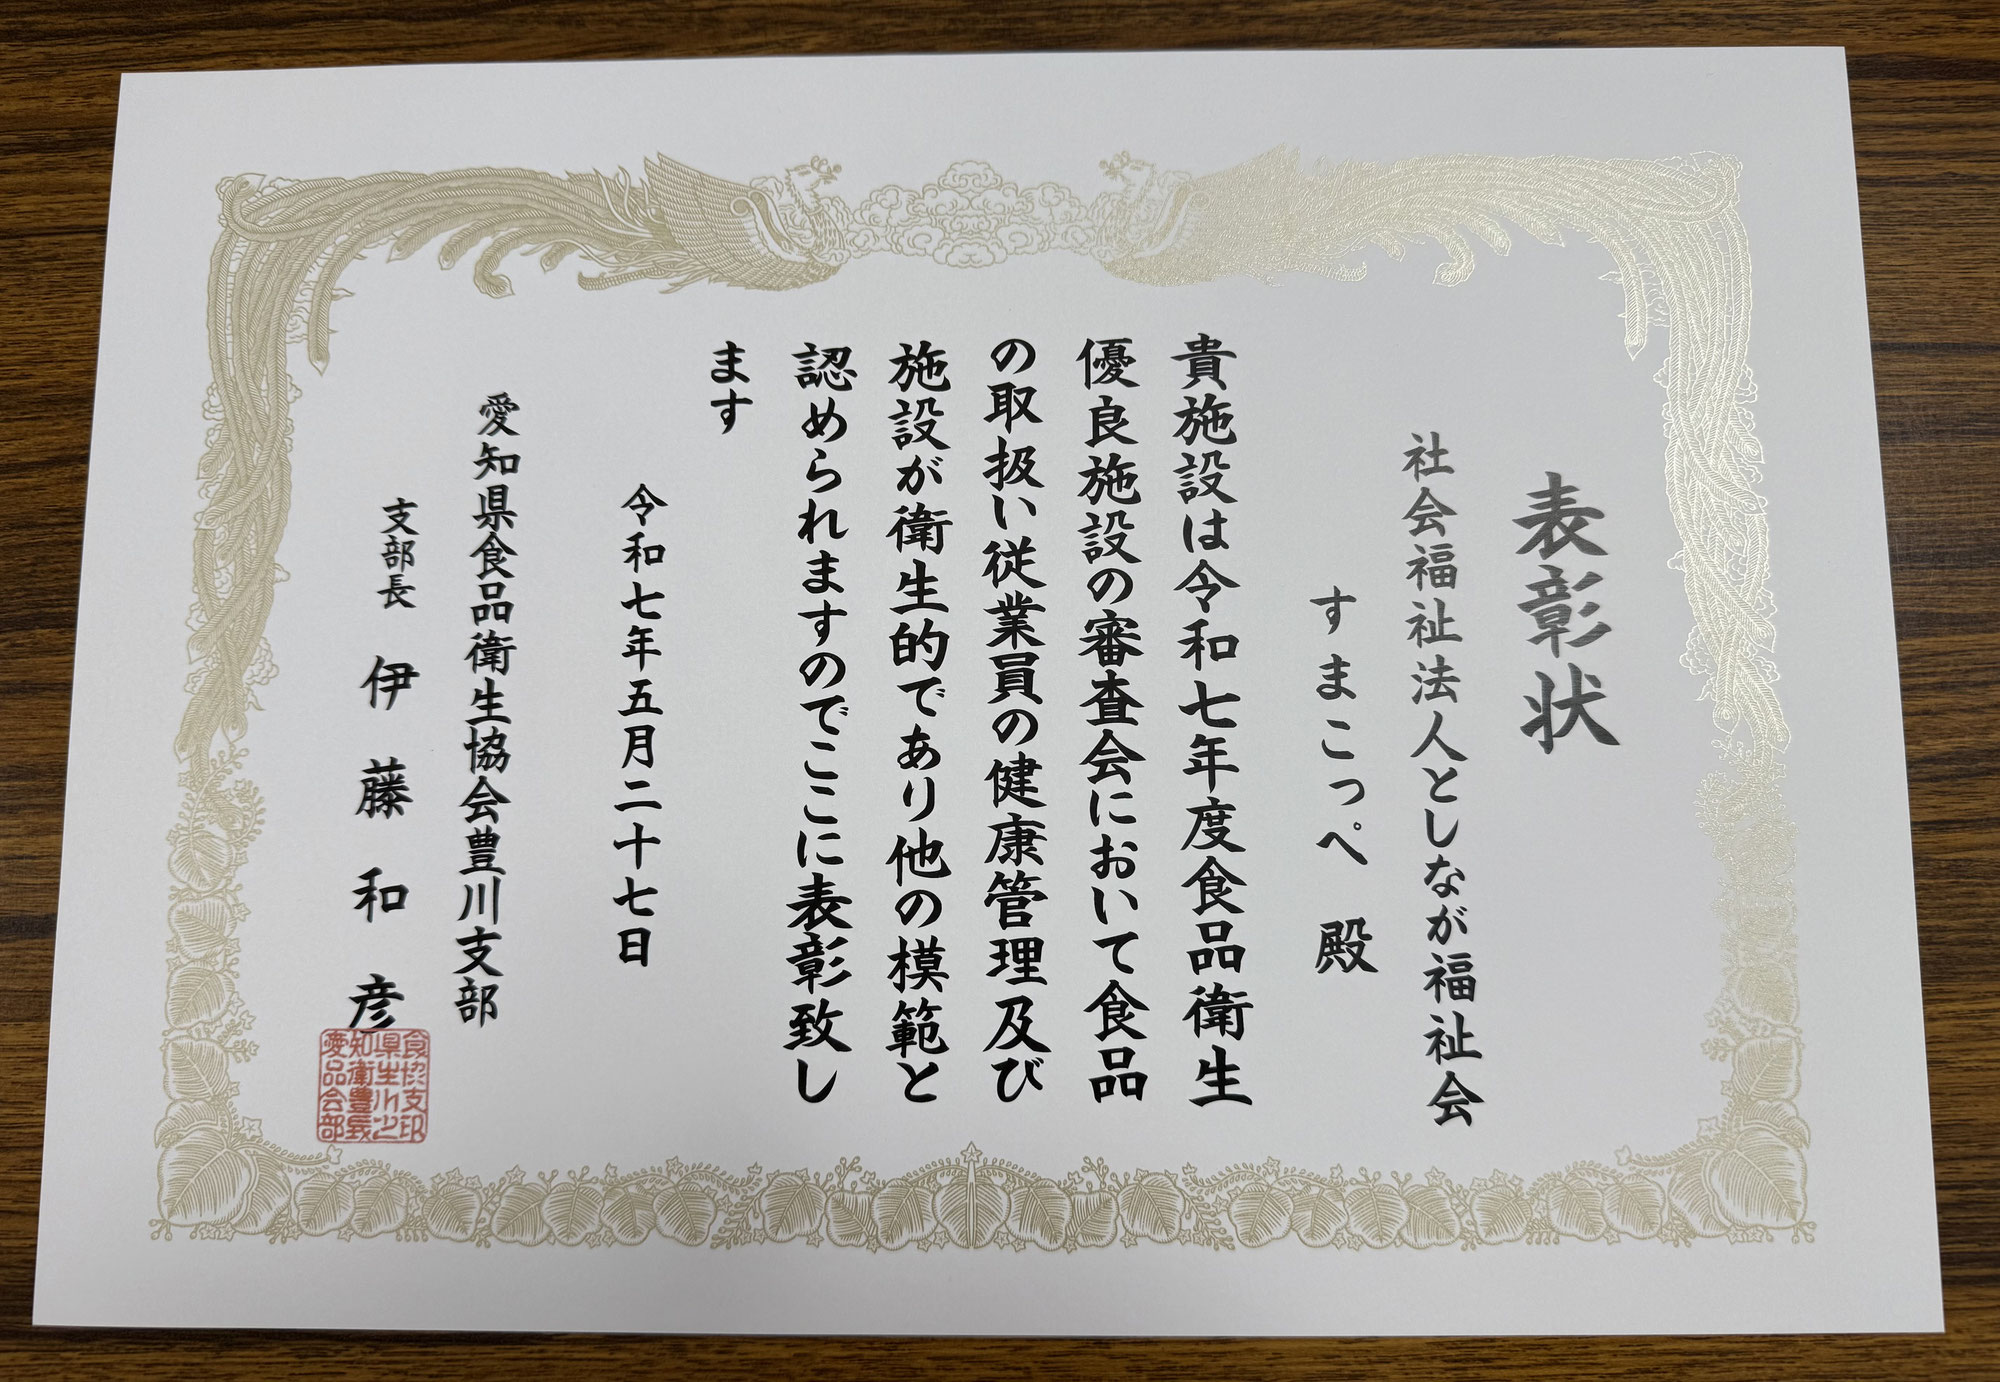 表彰状
社会福祉法人としなが福祉会
すまこっぺ 殿
貴施設は令和七年度食品衛生
優良施設の審査会において食品
の取扱い従業員の健康管理及び
施設が衛生的であり他の模範と
認められますのでここに表彰致し
ます
令和七年五月二十七日
愛知県食品衛生協会豊川支部
支部長 伊藤和彦
食協支印
県生川之
知衛豊長
愛品会部